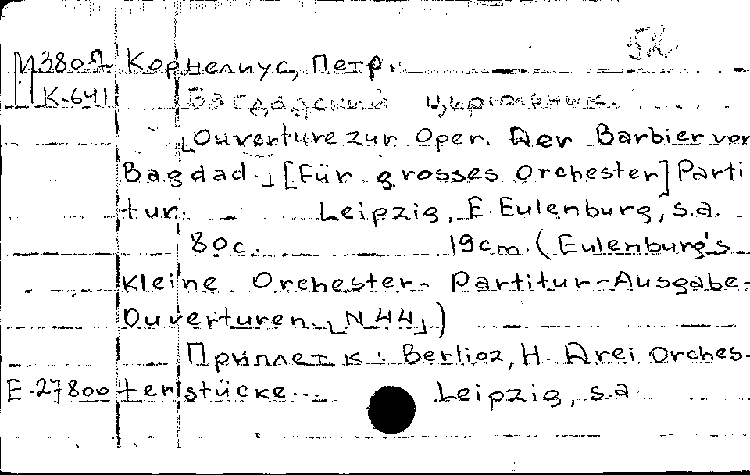 И380Л Корнелиус, Петр.
К-641 Багдадский цирюльник.
[Ouverture zur Oper. Der Barbier von
Bagdad.] [Für grosses Orchester] Parti
tur. Leipzig, E. Eulenburg, s.a.
80 с. 19 cm. (Eulenburg's
kleine Orchester-Partitur-Ausgabe.
Ouverturen [N 44])
Приплет к: Berlioz, H. Drei Orches-
E-27800 terstücke... Leipzig, s.a.